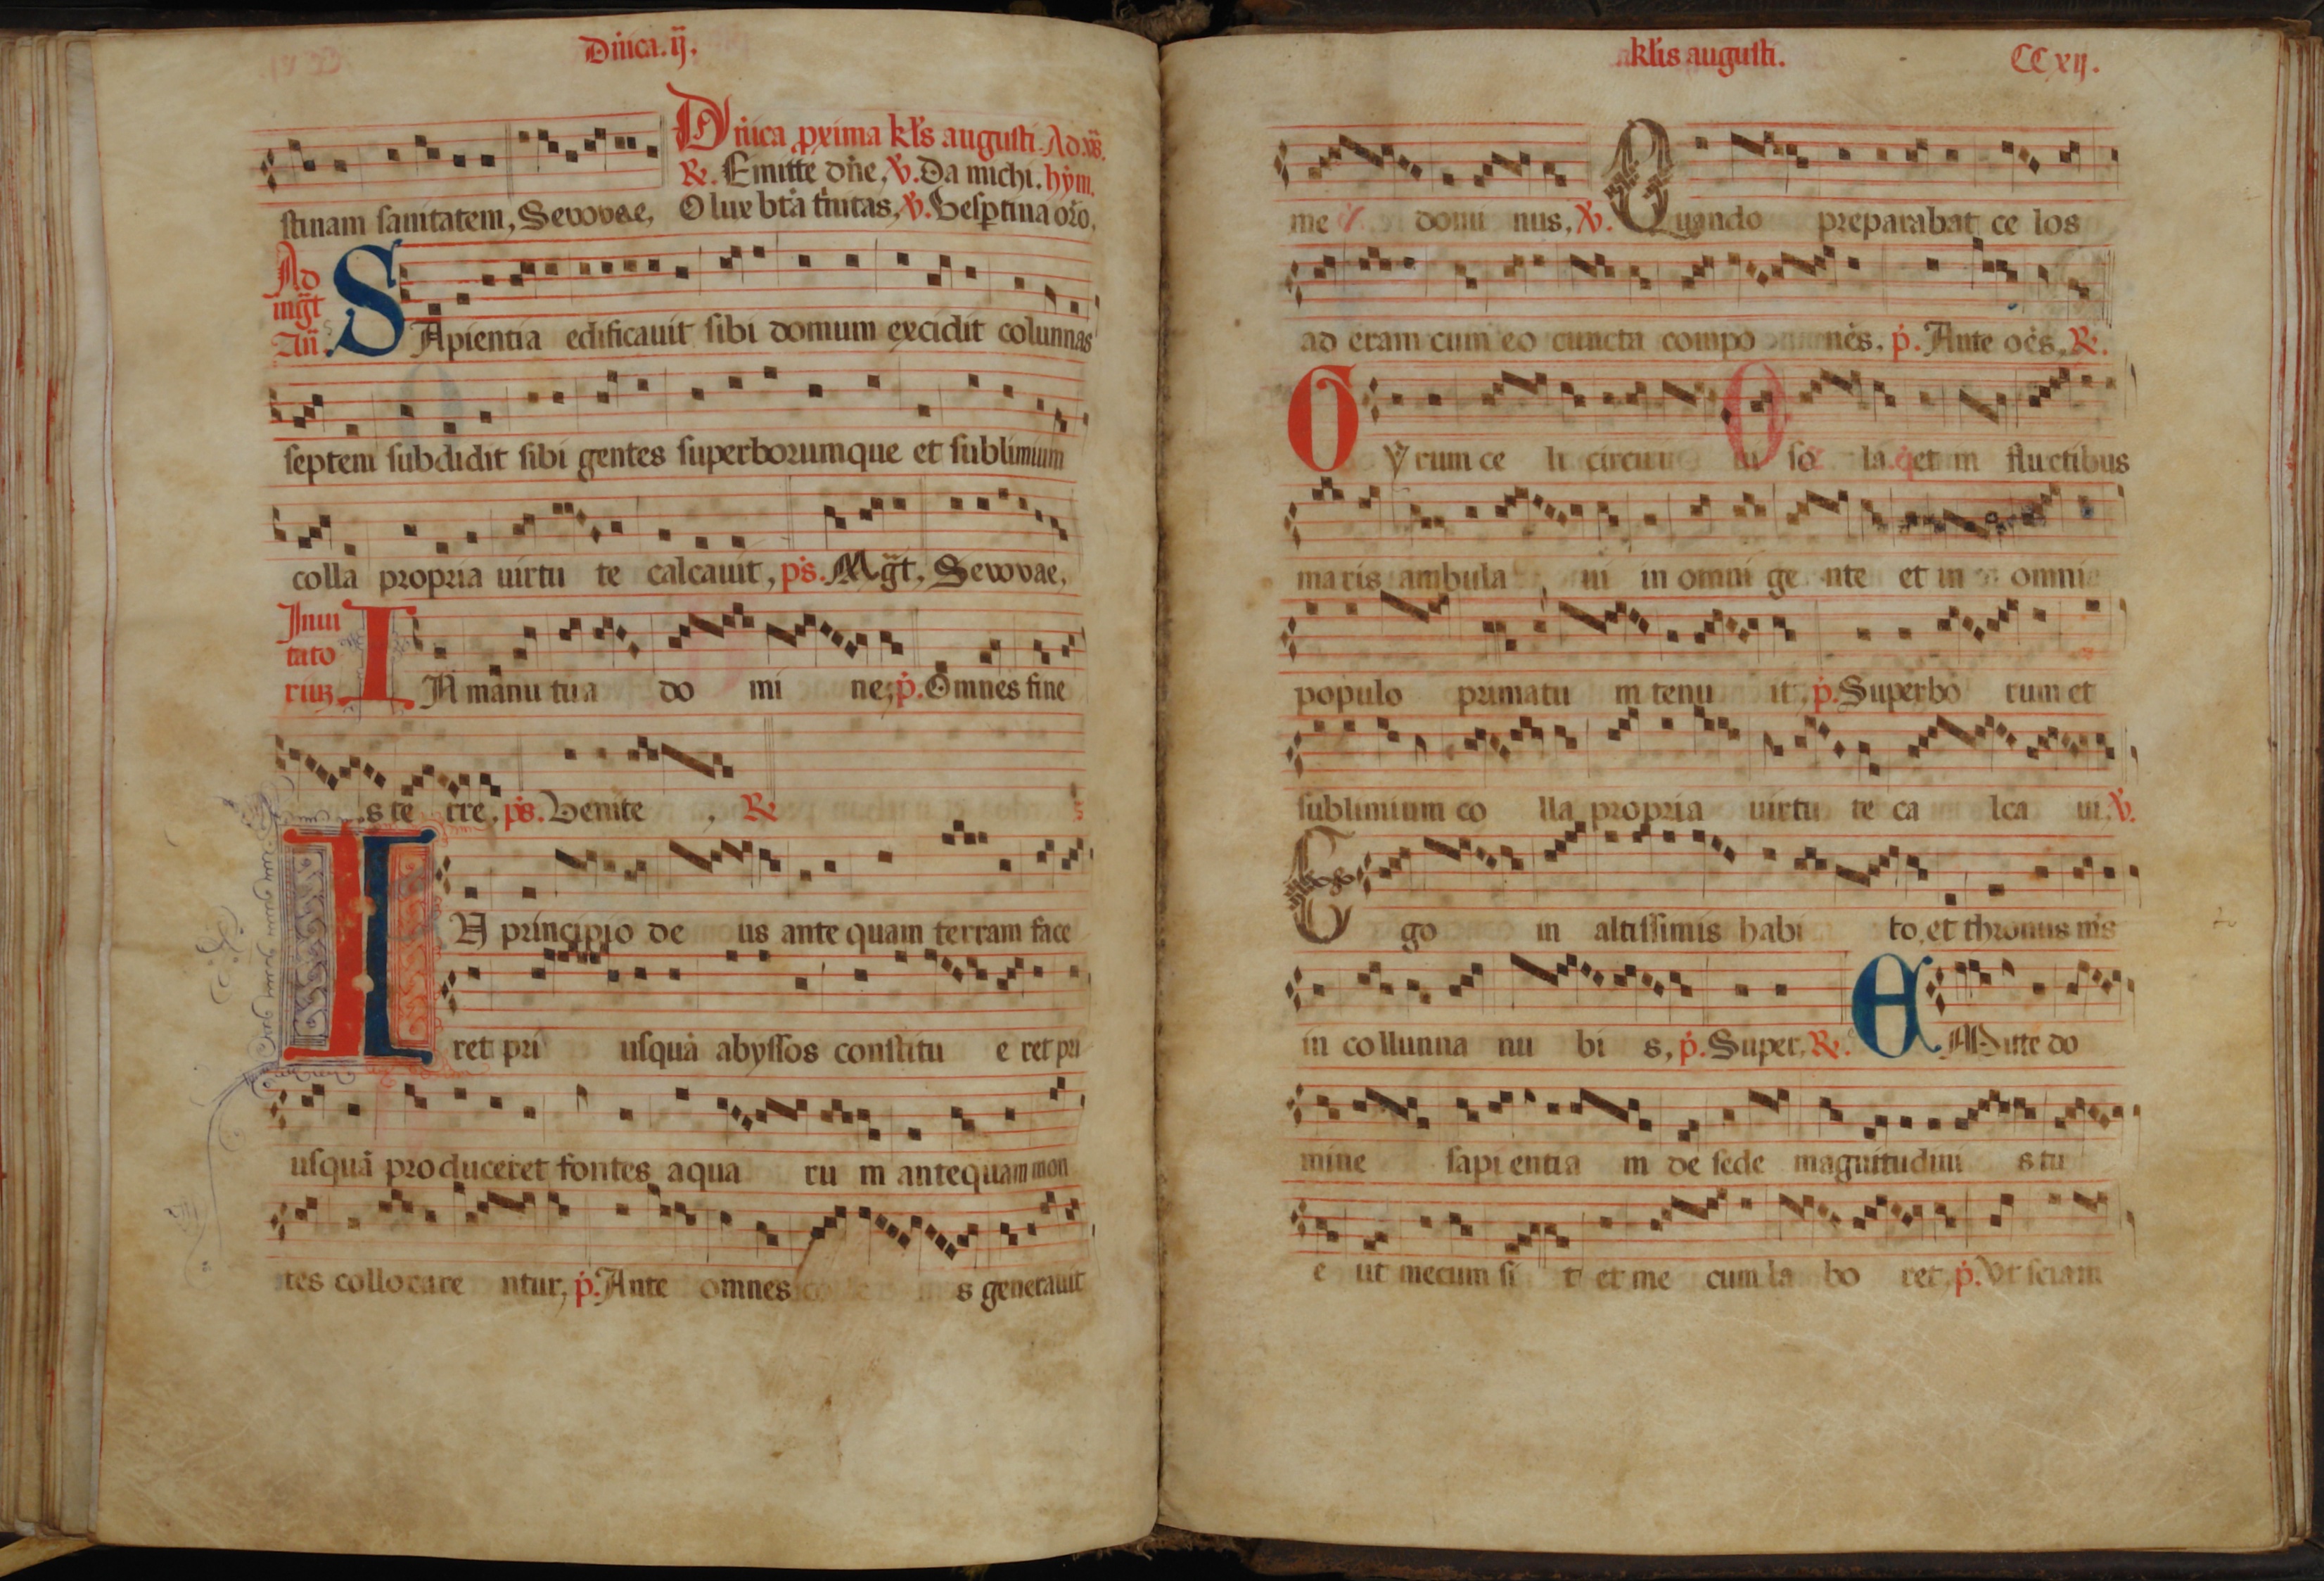 Dnica. ij.
Dnica pxima kls augusti. Ad vs.
R. Emitte dne, V. Da michi. hym.
stinam sanitatem, Sevovae, O lux bta tnitas, V. Vesptina oro,
Ad
mgt
An. SApientia edificauit sibi domum excidit colunnas
septem subdidit sibi gentes superborumque et sublimium
colla propria uirtu te calcauit, ps. Mgt, Sevovae,
Inui
tato
rium IN manu tua do mi ne, p. Omnes fine
s te rre, ps. Venite, R
IN principio de us ante quam terram face
ret pri usqua abyssos constitu e ret pri
usqua produceret fontes aqua ru m antequam mon
tes collocare ntur, p. Ante omnes s generauit
kls augusti.
CCxij.
me domi nus, V. Quando preparabat ce los
ad eram cum eo cuncta compo nes. p. Ante oes, R.
GYrum ce li circui ui so la et in fluctibus
maris ambula ui in omni ge nte et in omni
populo primatu m tenu it, p. Superbo rum et
sublimium co lla propria uirtu te ca lca ui. V.
Ego in altissimis habi to, et thronus ms
in collunna nu bi s, p. Super, R. EMitte do
mine sapi entia m de sede magnitudini s tu
e ut mecum si t et me cum la bo ret, p. Vt sciam